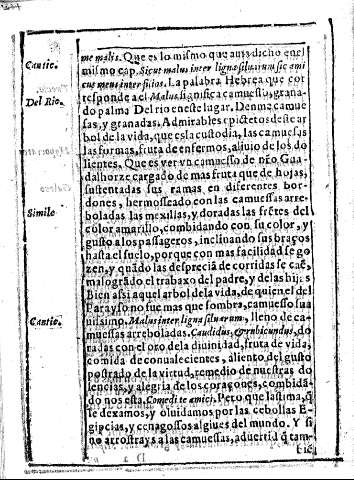 me malis. Que es lo mismo que auia dicho en el
Cantic.
mismo cap. Sicut malus inter ligna siluarum sic ami
cus meus inter filios. La palabra Hebrea que cor
responde a el Malus, significa camuesso, grana-
Del Rio.
do palma Del rio en este lugar. Denme camue
sas, y granadas. Admirables epictetos deste ar
bol de la vida, que es la custodia, las camuesas
las formas, fruta de enfermos, aliuio de los do
lientes. Que es ver vn camuesso de nr̃o Gua-
dalhorze cargado de mas fruta que de hojas,
sustentadas sus ramas en diferentes bor-
dones, hermosseado con las camuessas arre-
Simile
boladas las mexillas, y doradas las frẽtes del
color amarillo, combidando con su color, y
gusto a los passageros, inclinando sus braços
hasta el suelo, porque con mas facilidad se go
zen, y quãdo las despreciã de corridas se caẽ,
malogrãdo el trabaxo del padre, y de las hijas
Bien assi aquel arbol de la vida, de quien el del
Parayso no fue mas que sombra, camuesso sua
Cantic.
uissimo. Malus inter ligna siluarum, lleno de ca-
muessas arreboladas. Candidus, & rubicundus, do
radas con el oro de la diuinidad, fruta de vida,
comida de conualecientes, aliento del gusto
postrado de la virtud, remedio de nuestras do
lencias, y alegria de los coraçones, combidã-
do nos està, Comedite amici. Pero que lastima, q̃
le dexamos, y oluidamos por las cebollas E-
gipcias, y cenagossos algiues del mundo. Y si
no arrostrays a las camuessas, aduertid q̃ tam-
bie